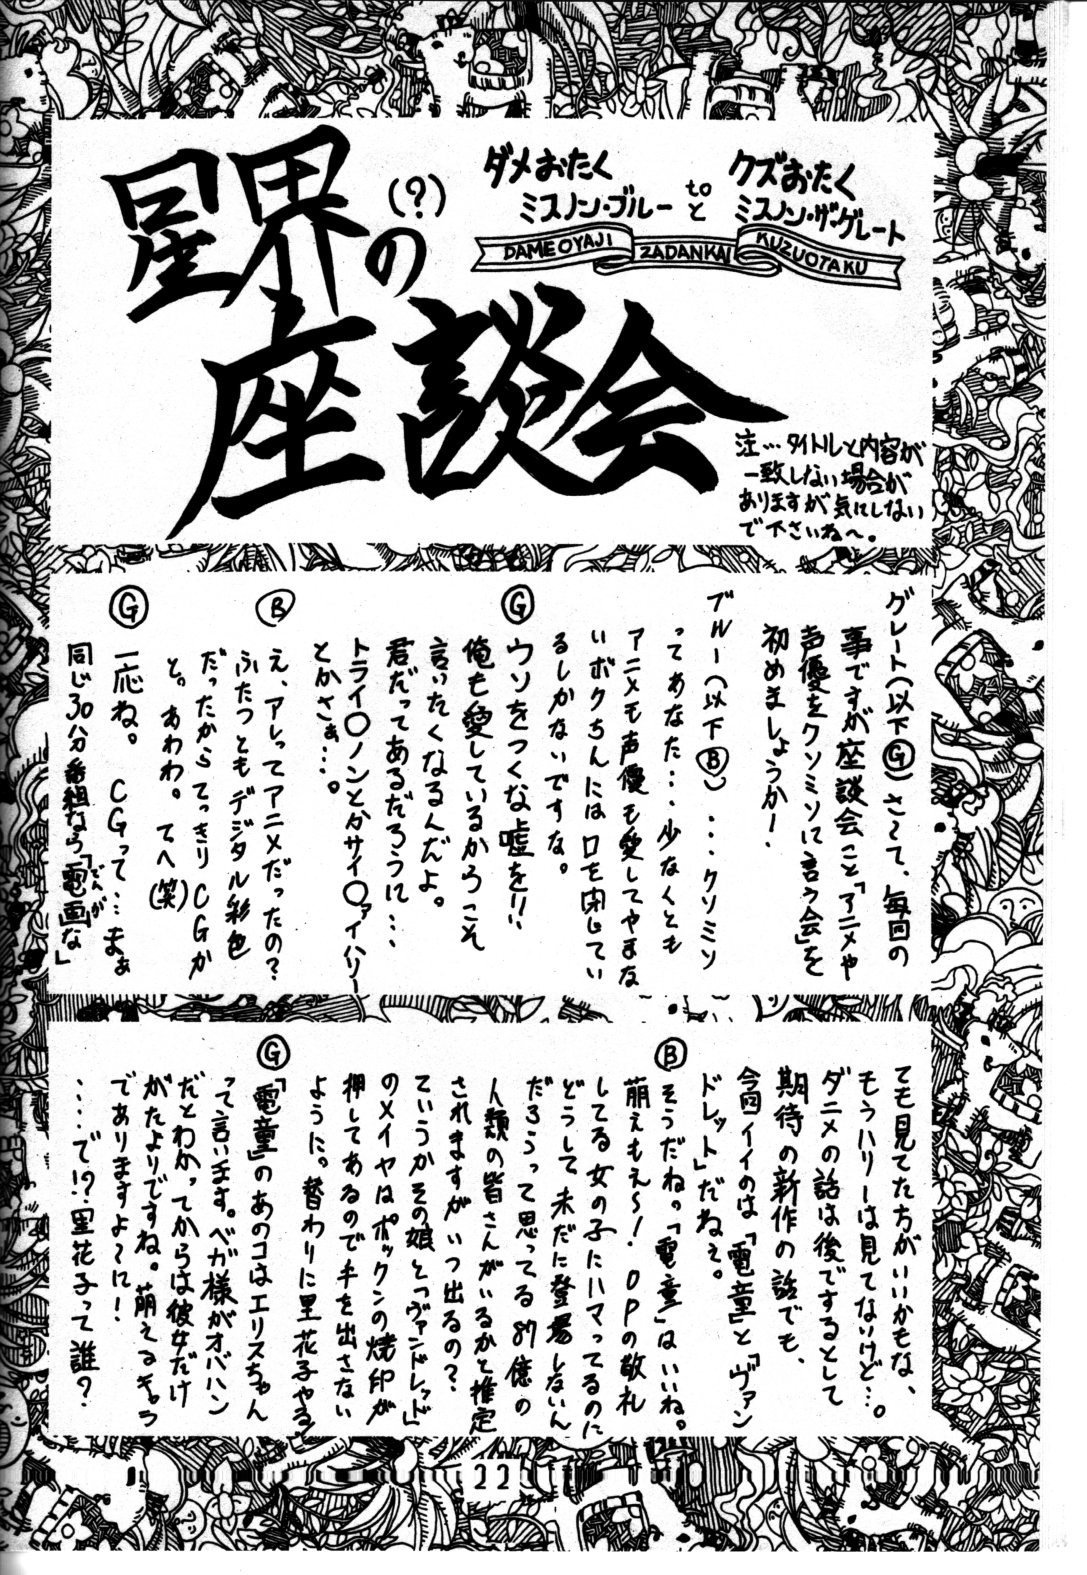 星界の(?)
座談会
ダメおたく
ミスノン・ブルー
to
と
クズおたく
ミスノン・ザ・グレート
DAMEOYAJI
ZADANKAI
KUZUOTAKU
注…タイトルと内容が
一致しない場合が
ありますが気にしない
で下さいね〜。
グレート(以下Ⓖ)さ〜て、毎回の
事ですが座談会こと「アニメや
声優をクソミソに言う会」を
初めましょうか!
ブルー(以下Ⓑ)...クソミソ
ってあなた...少なくとも
アニメも声優も愛してやまな
いボクちんには口を閉じてい
るしかないですな。
Ⓖ
ウソをつくな嘘を!!
俺も愛しているからこそ
言いたくなるんだよ。
君だってあるだろうに...
トライ〇ノンとかサイ〇ァイハリー
とかさぁ...。
Ⓑ
え、アレってアニメだったの?
ふたつともデジタル彩色
だったからてっきりCGか
と。あわわ。てへ(笑)
Ⓖ
一応ね。CGって...まぁ
同じ30分番組なら「電画な」
でんが
ても見てた方がいいかもな、
もうハリーは見てないけど...。
ダニメの話は後でするとして
期待の新作の話でも、
今回イイのは「電童」と「ヴァン
ドレット」だねぇ。
Ⓑ
そうだねっ「電童」はいいね。
萌えもえ〜!OPの敬礼
してる女の子にハマってるのに
どうして未だに登場しないん
だろうって思ってる87億の
人類の皆さんがいるかと推定
されますがいつ出るの?
ていうかその娘と「ヴァンドレッド」
のメイヤはポックンの焼印が
押してあるので手を出さない
ように。替わりに里花子やる♪
Ⓖ
「電童」のあのコはエリスちゃん
って言います。ベガ様がオバハン
だとわかってからは彼女だけ
がたよりですね。萌えるぎゃう
でありますよ〜に!
....で!?里花子って誰?
22